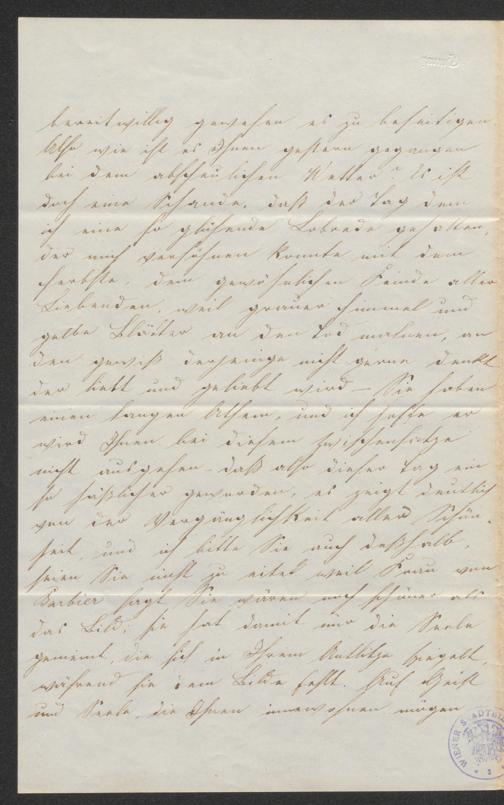 bereitwillig gewesen es zu beseitigen
Also wie ist es Ihnen gestern gegangen
bei dem abscheulichen Wetter? Es ist
doch eine Schande, daß der Tag dem
ich eine so glühende Lobrede gehalten,
der mich versöhnen konnte mit dem
Herbste, dem gewöhnlichen Feinde aller
Liebenden, weil grauer Himmel und
gelbe Blätter an den Tod mahnen, an
den gewiß derjenige nicht gerne denkt
der liebt und geliebt wird – Sie haben
einen langen Athem, und ich hoffe er
wird Ihnen bei diesem Zwischensatze
nicht ausgehen – daß also dieser Tag ein
so häßlicher geworden, es zeigt deutlich
von der Vergänglichkeit aller Schön-
heit, und ich bitte Sie auch deßhalb,
seien Sie nicht zu eitel weil Frau von
Barbier sagt Sie wären noch schöner als
das Bild; sie hat damit nur die Seele
gemeint, die sich in Ihrem Antlitze spiegelt,
während sie dem Bilde fehlt. Auf Geist
und Seele, die Ihnen innewohnen mögen
WIENER STADTBI